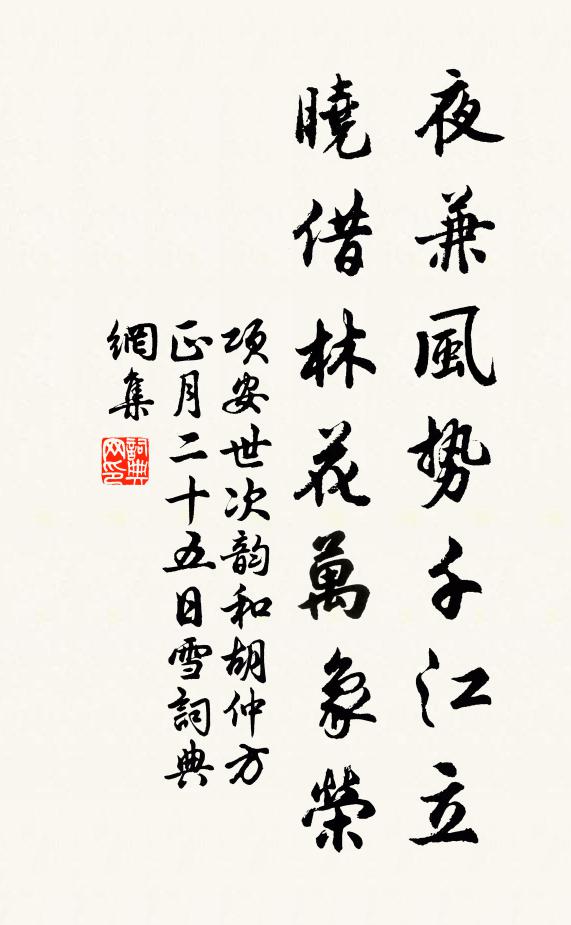 夜兼風勢千江立
曉借林花萬象榮
項安世次韵和胡仲方
正月二十五日雪詞典
網集
詞典
网印